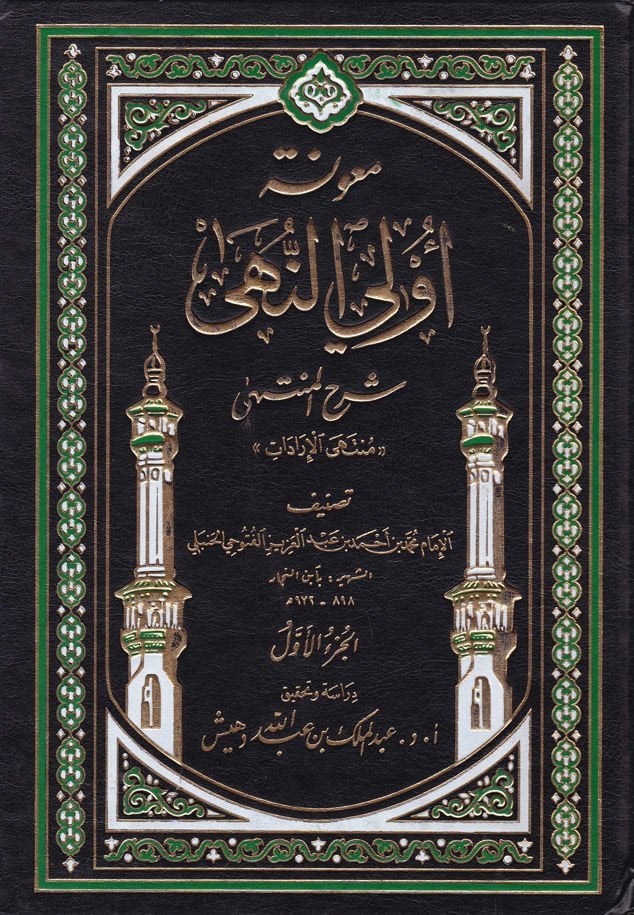 معونة
أُوْلِي النُّهَى
شرح المنتهى
«مُنْتَهَى الإِرَادَات»
تصنيف
الإمام محمد بن أحمد بن عبد العزيز الفتوحي الحنبلي
الشهير: بابن النجار
٨٩٨ - ٩٧٢هـ
الجُزءُ الأَوَّلُ
دراسة وتحقيق
أ. د. عبد الملك بن عبد الله دهيش